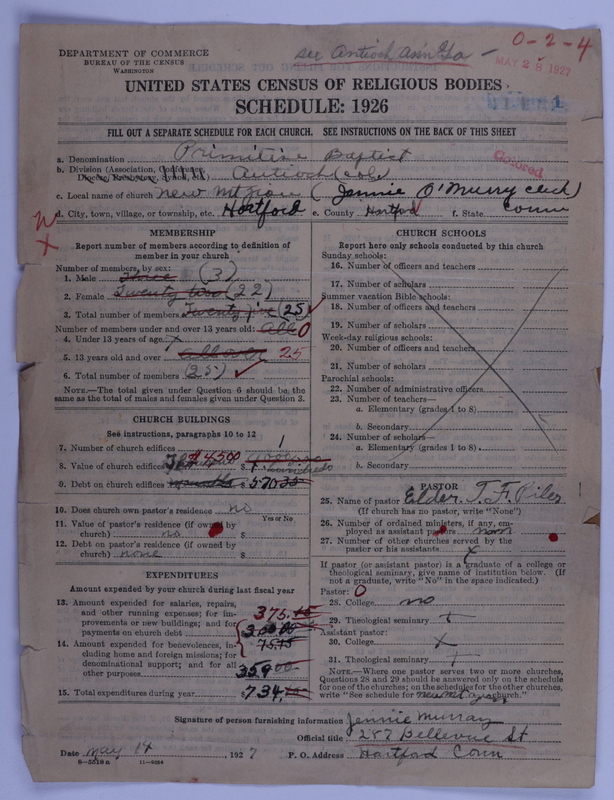 DEPARTMENT OF COMMERCE
BUREAU OF THE CENSUS
WASHINGTON
see Antioch Ass'n Ga -
0-2-4
MAY 28 1927
UNITED STATES CENSUS OF RELIGIOUS BODIES
SCHEDULE: 1926
FILL OUT A SEPARATE SCHEDULE FOR EACH CHURCH. SEE INSTRUCTIONS ON THE BACK OF THIS SHEET
a. Denomination Primitive Baptist
Colored
b. Division (Association, Conference, Diocese, Presbytery, Synod, etc.) Antioch (col)
c. Local name of church New Mt Zion (Jennie O'Murry clerk)
d. City, town, village, or township, etc. Hartford e. County Hartford f. State Conn
MEMBERSHIP
Report number of members according to definition of member in your church
Number of members, by sex:
1. Male Three (3)
2. Female Twenty two (22)
3. Total number of members Twenty five (25)
Number of members under and over 13 years old: all 0
4. Under 13 years of age x
5. 13 years old and over all over 25
6. Total number of members (25)
NOTE.—The total given under Question 6 should be the same as the total of males and females given under Question 3.
CHURCH BUILDINGS
See instructions, paragraphs 10 to 12
7. Number of church edifices 1
8. Value of church edifices $4500
9. Debt on church edifices $
10. Does church own pastor's residence? no
Yes or No
11. Value of pastor's residence (if owned by church) no $
12. Debt on pastor's residence (if owned by church) none $
EXPENDITURES
Amount expended by your church during last fiscal year
13. Amount expended for salaries, repairs, and other running expenses; for improvements or new buildings; and for payments on church debt 375.15
300.00
75.15
14. Amount expended for benevolences, including home and foreign missions; for denominational support; and for all other purposes 359.00
15. Total expenditures during year $734.
CHURCH SCHOOLS
Report here only schools conducted by this church
Sunday schools:
16. Number of officers and teachers
17. Number of scholars
Summer vacation Bible schools:
18. Number of officers and teachers
19. Number of scholars
Week-day religious schools:
20. Number of officers and teachers
21. Number of scholars
Parochial schools:
22. Number of administrative officers
23. Number of teachers—
a. Elementary (grades 1 to 8)
b. Secondary
24. Number of scholars—
a. Elementary (grades 1 to 8)
b. Secondary
PASTOR
25. Name of pastor Elder. T. F. Piles
(If church has no pastor, write "None")
26. Number of ordained ministers, if any, employed as assistant pastors none
27. Number of other churches served by the pastor or his assistants x
If pastor (or assistant pastor) is a graduate of a college or theological seminary, give name of institution below. (If not a graduate, write "No" in the space indicated.)
Pastor: 0
28. College no
29. Theological seminary x
Assistant pastor:
30. College x
31. Theological seminary x
NOTE.—Where one pastor serves two or more churches, Questions 28 and 29 should be answered only on the schedule for one of the churches; on the schedules for the other churches, write "See schedule for new Mt Zion church."
Signature of person furnishing information Jennie Murray
Official title 287 Bellevue St
Date May 14 1927 P. O. Address Hartford Conn
8-5519a 11-9584